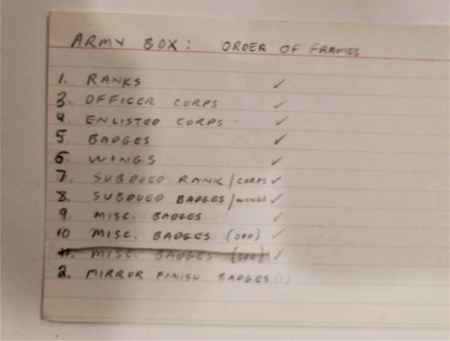 ARMY BOX: ORDER OF FRAMES
1. RANKS ✓
3. OFFICER CORPS ✓
4 ENLISTED CORPS ✓
5 BADGES ✓
6. WINGS ✓
7. SUBDUED RANK/CORPS ✓
8. SUBDUED BADGES/WINGS ✓
9 MISC. BADGES ✓
10 MISC. BADGES (ODD) ✓
11. MISC. BADGES (ODD) ✓
2. MIRROR FINISH BADGES